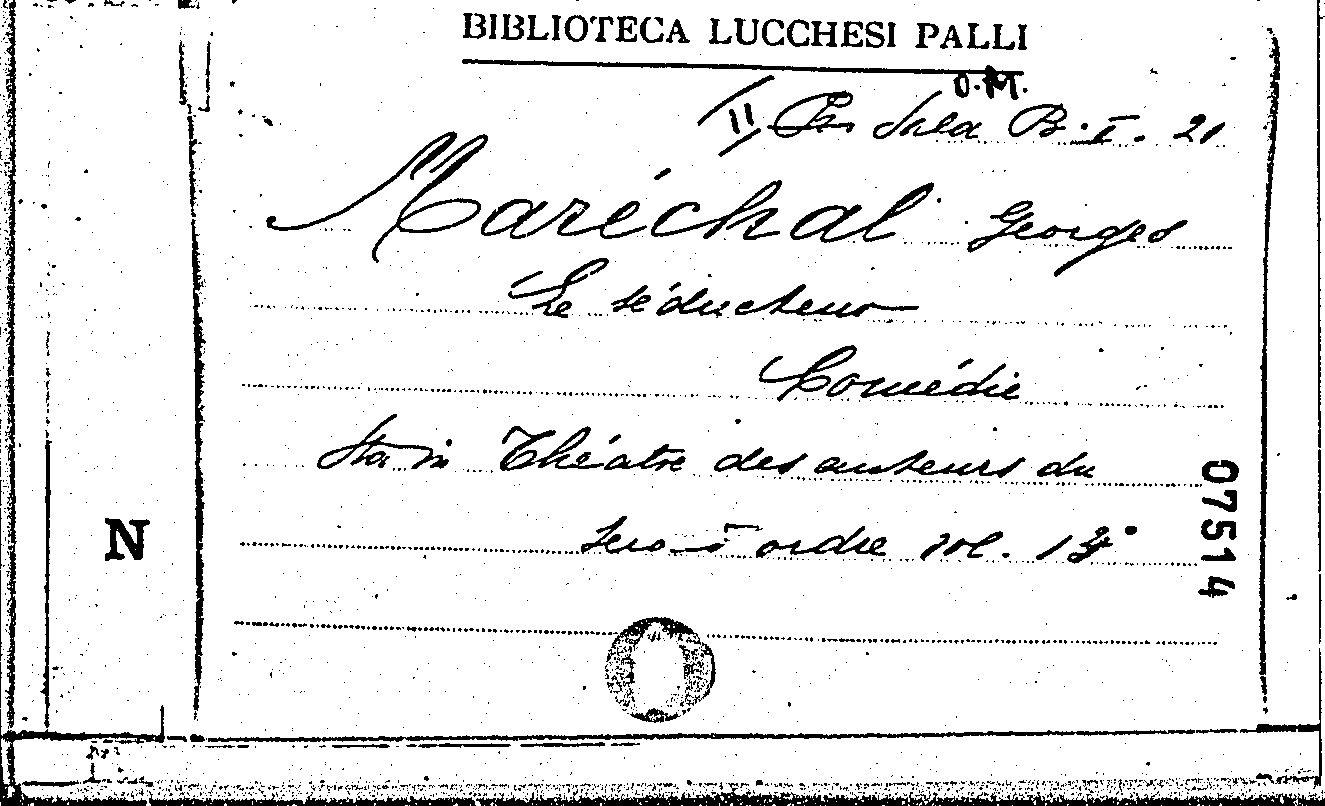 BIBLIOTECA LUCCHESI PALLI
O.M.
II Sala B. I. 21
Maréchal Georges
Le séducteur
Comédie
Sta in Théâtre des auteurs du
ordre vol. 13°
N
07514